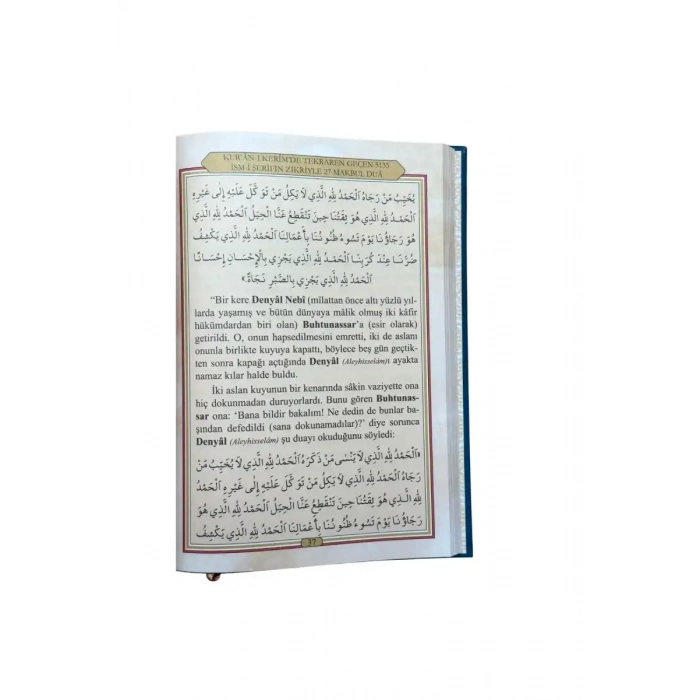 KUR'ÂN-I KERÎM'DE TEKRAREN GEÇEN 5135
İSM-İ ŞERÎFİN ZİKRİYLE 27 MAKBUL DUÂ
يُخَيِّبُ مَنْ رَجَاهُ اَلْحَمْدُ لِلّٰهِ الَّذِي لَا يَكِلُ مَنْ تَوَكَّلَ عَلَيْهِ إِلَى غَيْرِهِ
اَلْحَمْدُ لِلّٰهِ الَّذِي هُوَ ثِقَتُنَا حِينَ تَنْقَطِعُ عَنَّا الْحِيَلُ اَلْحَمْدُ لِلّٰهِ الَّذِي
هُوَ رَجَاؤُنَا يَوْمَ تَسُوءُ ظُنُونُنَا بِأَعْمَالِنَا اَلْحَمْدُ لِلّٰهِ الَّذِي يَكْشِفُ
ضُرَّنَا عِنْدَ كَرْبِنَا اَلْحَمْدُ لِلّٰهِ الَّذِي يَجْزِي بِالْإِحْسَانِ إِحْسَانًا
اَلْحَمْدُ لِلّٰهِ الَّذِي يَجْزِي بِالصَّبْرِ نَجَاةً»
"Bir kere Denyâl Nebî (mîlattan önce altı yüzlü yıl-
larda yaşamış ve bütün dünyaya mâlik olmuş iki kâfir
hükümdardan biri olan) Buhtunassar'a (esir olarak)
getirildi. O, onun hapsedilmesini emretti, iki de aslanı
onunla birlikte kuyuya kapattı, böylece beş gün geçtik-
ten sonra kapağı açtığında Denyâl (Aleyhisselâm)ı ayakta
namaz kılar halde buldu.
İki aslan kuyunun bir kenarında sâkin vaziyette ona
hiç dokunmadan duruyorlardı. Bunu gören Buhtunas-
sar ona: 'Bana bildir bakalım! Ne dedin de bunlar ba-
şından defedildi (sana dokunamadılar)?' diye sorunca
Denyâl (Aleyhisselâm) şu duayı okuduğunu söyledi:
«اَلْحَمْدُ لِلّٰهِ الَّذِي لَا يَنْسَى مَنْ ذَكَرَهُ اَلْحَمْدُ لِلّٰهِ الَّذِي لَا يُخَيِّبُ مَنْ
رَجَاهُ اَلْحَمْدُ لِلّٰهِ الَّذِي لَا يَكِلُ مَنْ تَوَكَّلَ عَلَيْهِ إِلَى غَيْرِهِ اَلْحَمْدُ
لِلّٰهِ الَّذِي هُوَ ثِقَتُنَا حِينَ تَنْقَطِعُ عَنَّا الْحِيَلُ اَلْحَمْدُ لِلّٰهِ الَّذِي هُوَ
رَجَاؤُنَا يَوْمَ تَسُوءُ ظُنُونُنَا بِأَعْمَالِنَا اَلْحَمْدُ لِلّٰهِ الَّذِي يَكْشِفُ
37